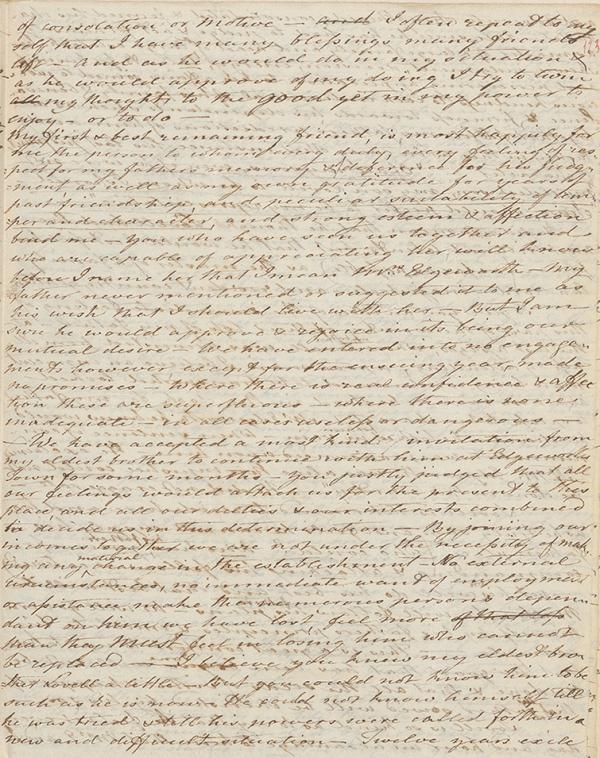 of consolation or motive — and I often repeat to my
self that I have many blessings many friends
left — and as he would do in my situation &
as he would approve of my doing I try to turn
all my thoughts to the good yet in my power to
enjoy — or to do —
My first & best remaining friend is most happily for
me the person to whom my duty, every feeling of res
pect for my fathers memory & deference for his judg
ment as well as my own gratitude for years of
past friendship, and peculiar suitability of tem
per and character, and strong esteem & affection
bind me — You who have seen us together and
who are capable of appreciating her will know
before I name her that I mean Mrs. Edgeworth — My
father never mentioned or suggested it to me as
his wish that I should live with her — But I am
sure he would approve & rejoice in its being our
mutual desire — We have entered into no engage-
ments however except for the ensuing year, made
no promises — Where there is real confidence & affec
tion these are superfluous — where there is none,
inadequate — in all cases useless or dangerous —
— We have accepted a most kind invitation from
my eldest brother to continue with him at Edgeworths
Town for some months — You justly judged that all
our feelings would attach us for the present to this
place, and all our duties & our interests combined
to decide us in this determination — By joining our
incomes together we are not under the necessity of mak
ing any material change in the establishment — No external
circumstances, no immediate want of employment
or assistance make the numerous persons depen-
dant on him we have lost feel more
than they must feel in losing him who cannot
be replaced — I believe you knew my eldest bro
ther Lovell a little — But you could not know him to be
such as he is now — He could not know himself till
he was tried & till his powers were called forth in a
new and difficult situation — Twelve years exile